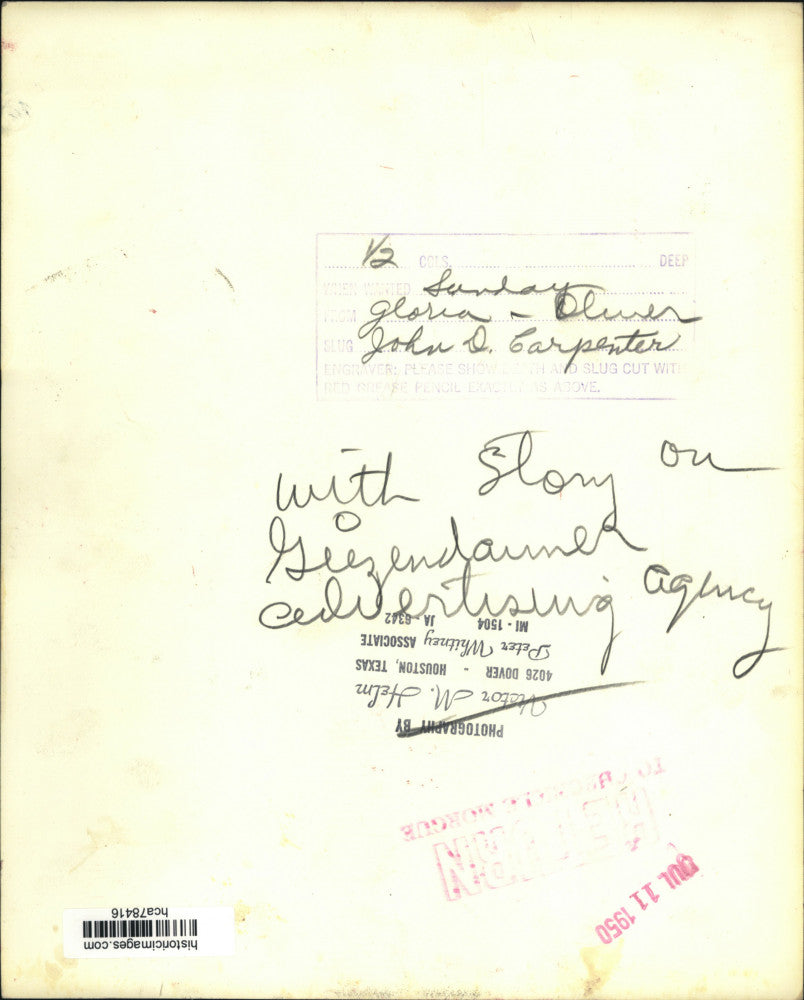 1/2 COLS. DEEP
WHEN WANTED Sunday
FROM Gloria - Oliver
SLUG John D. Carpenter
ENGRAVER: PLEASE SHOW DEPTH AND SLUG CUT WITH
RED GREASE PENCIL EXACTLY AS ABOVE.
with Story on
Giezendanner
advertising agency
PHOTOGRAPHY BY
Victor M. Helm
4026 DOVER - HOUSTON, TEXAS
Peter Whitney ASSOCIATE
MI - 1504 JA - 6342
RETURN
TO CHRONICLE MORGUE
JUL 11 1950
historicimages.com
hca78416